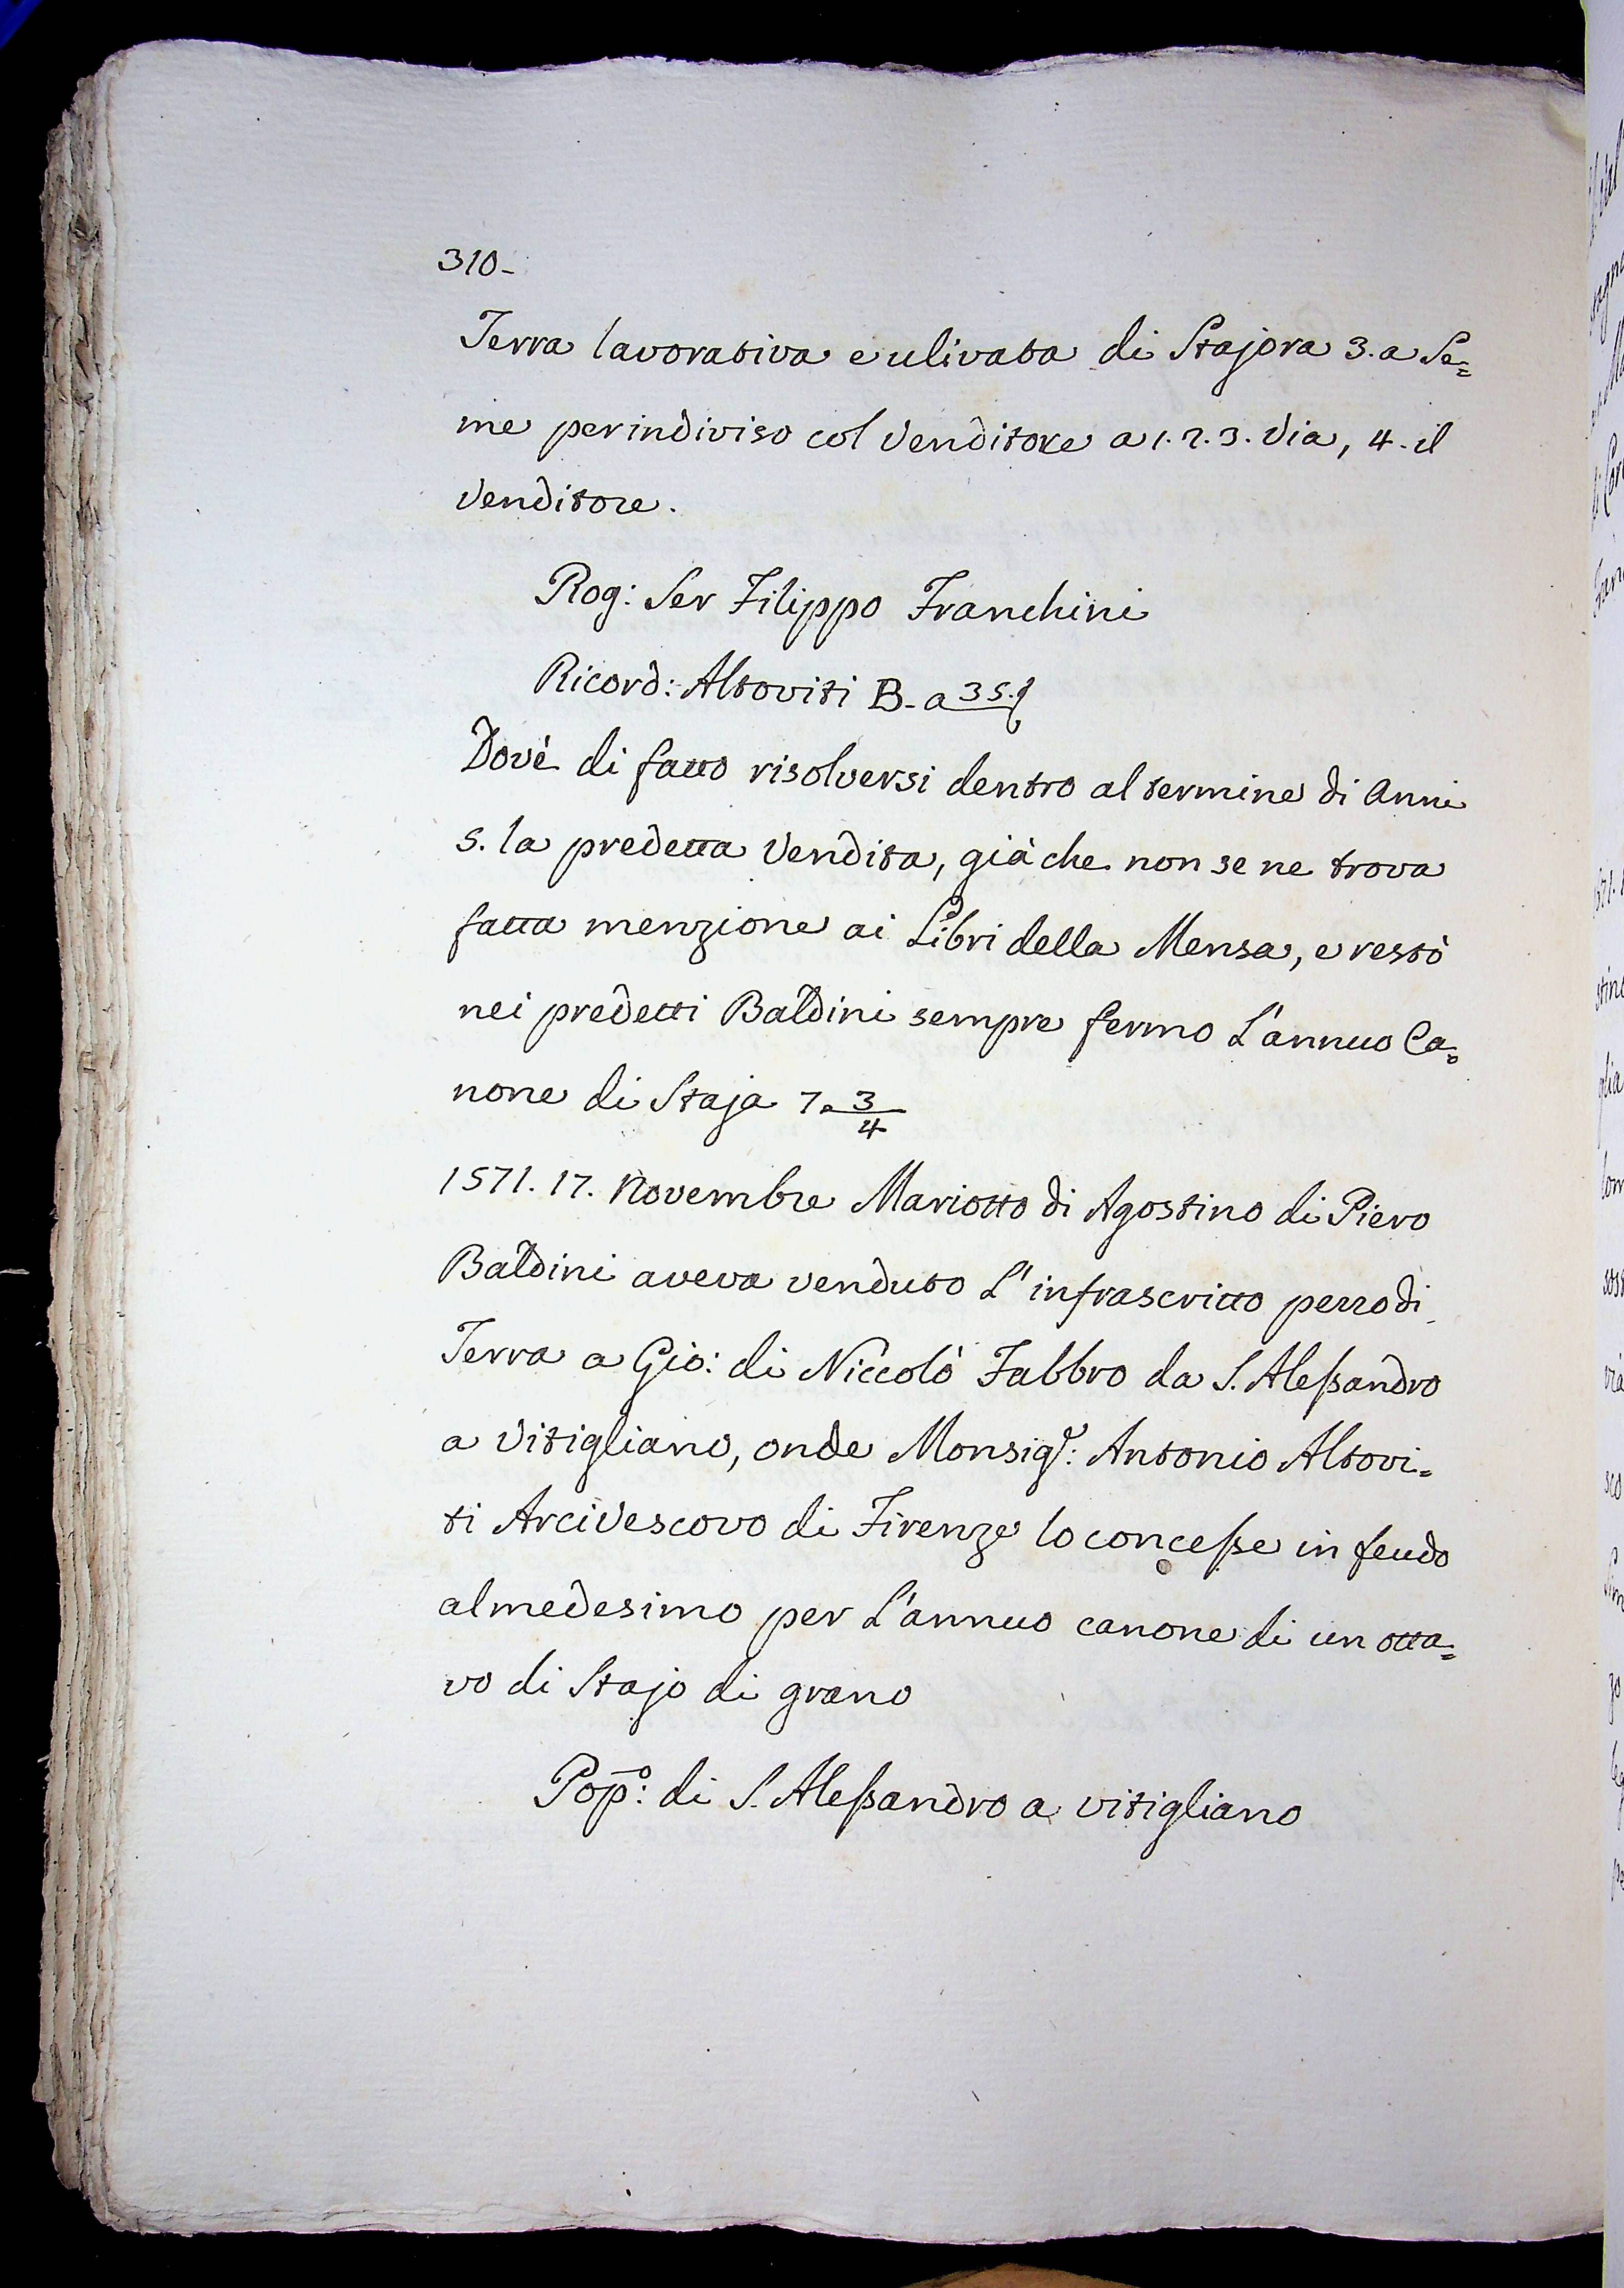 310-
Terra lavorativa e ulivata di Stajora 3. a Se=
me per indiviso col Venditore a 1. 2. 3. Via, 4. il
Venditore.
Rog: Ser Filippo Franchini
Ricord: Altoviti B- a 35.
Dovè di fatto risolversi dentro al termine di Anni
5. la predetta Vendita, già che non se ne trova
fatta menzione ai Libri della Mensa, e restò
nei predetti Baldini sempre fermo L'annuo Ca=
none di Staja 7. 3/4
1571. 17. Novembre Mariotto di Agostino di Piero
Baldini aveva venduto L'infrascritto pezzo di
Terra a Gio: di Niccolò Fabbro da S. Aleßandro
a Vitigliano, onde Monsigr: Antonio Altovi=
ti Arcivescovo di Firenze lo conceße in feudo
al medesimo per L'annuo canone di un otta=
vo di Stajo di grano
Popo: di S. Aleßandro a vitigliano